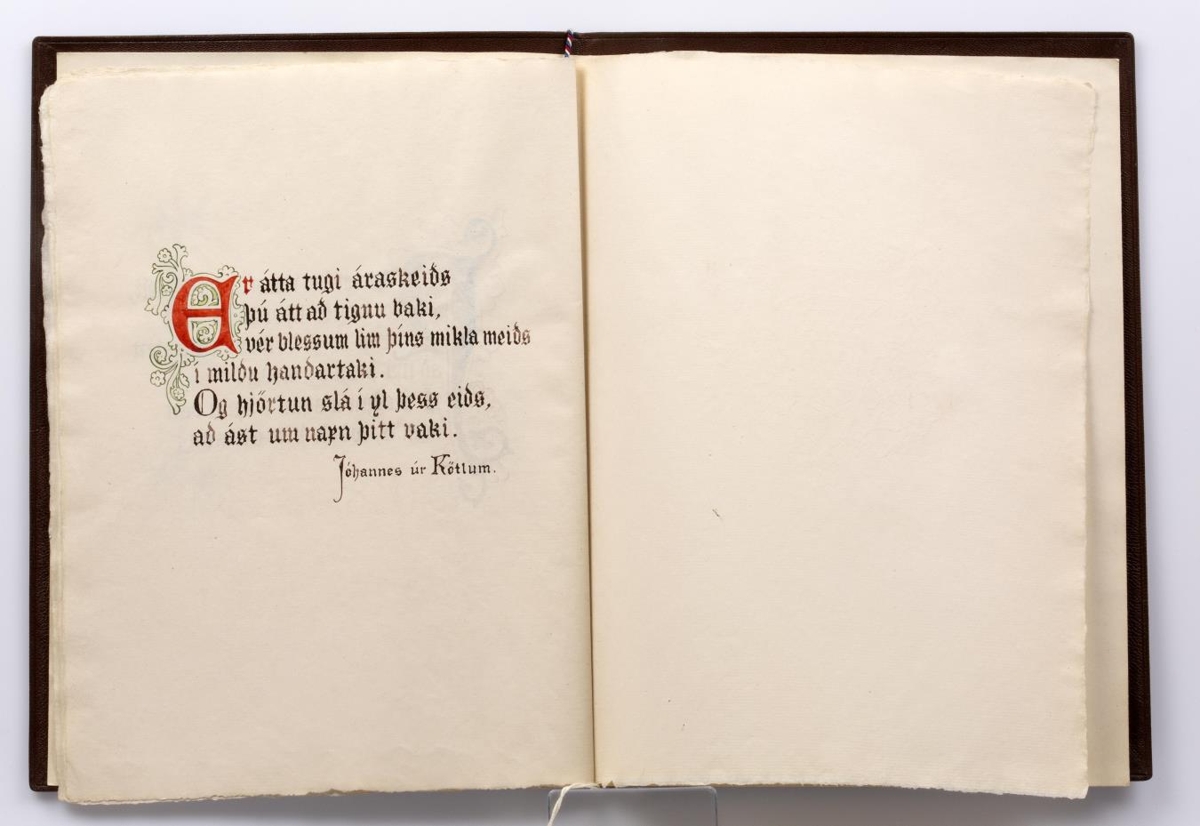 Er átta tugi áraskeiðs
þú átt að tignu baki,
vér blessum lim þíns mikla meiðs
í mildu handartaki.
Og hjörtun slá í yl þess eiðs,
að ást um nafn þitt vaki.
Jóhannes úr Kötlum.